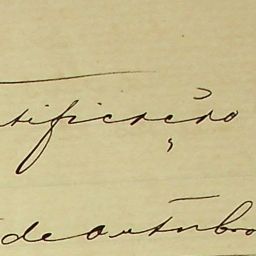 tificação
de outubro